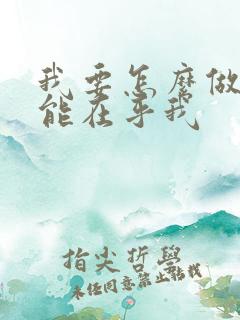 我要怎麼做
能在乎我
指尖哲學
未經同意禁止轉載